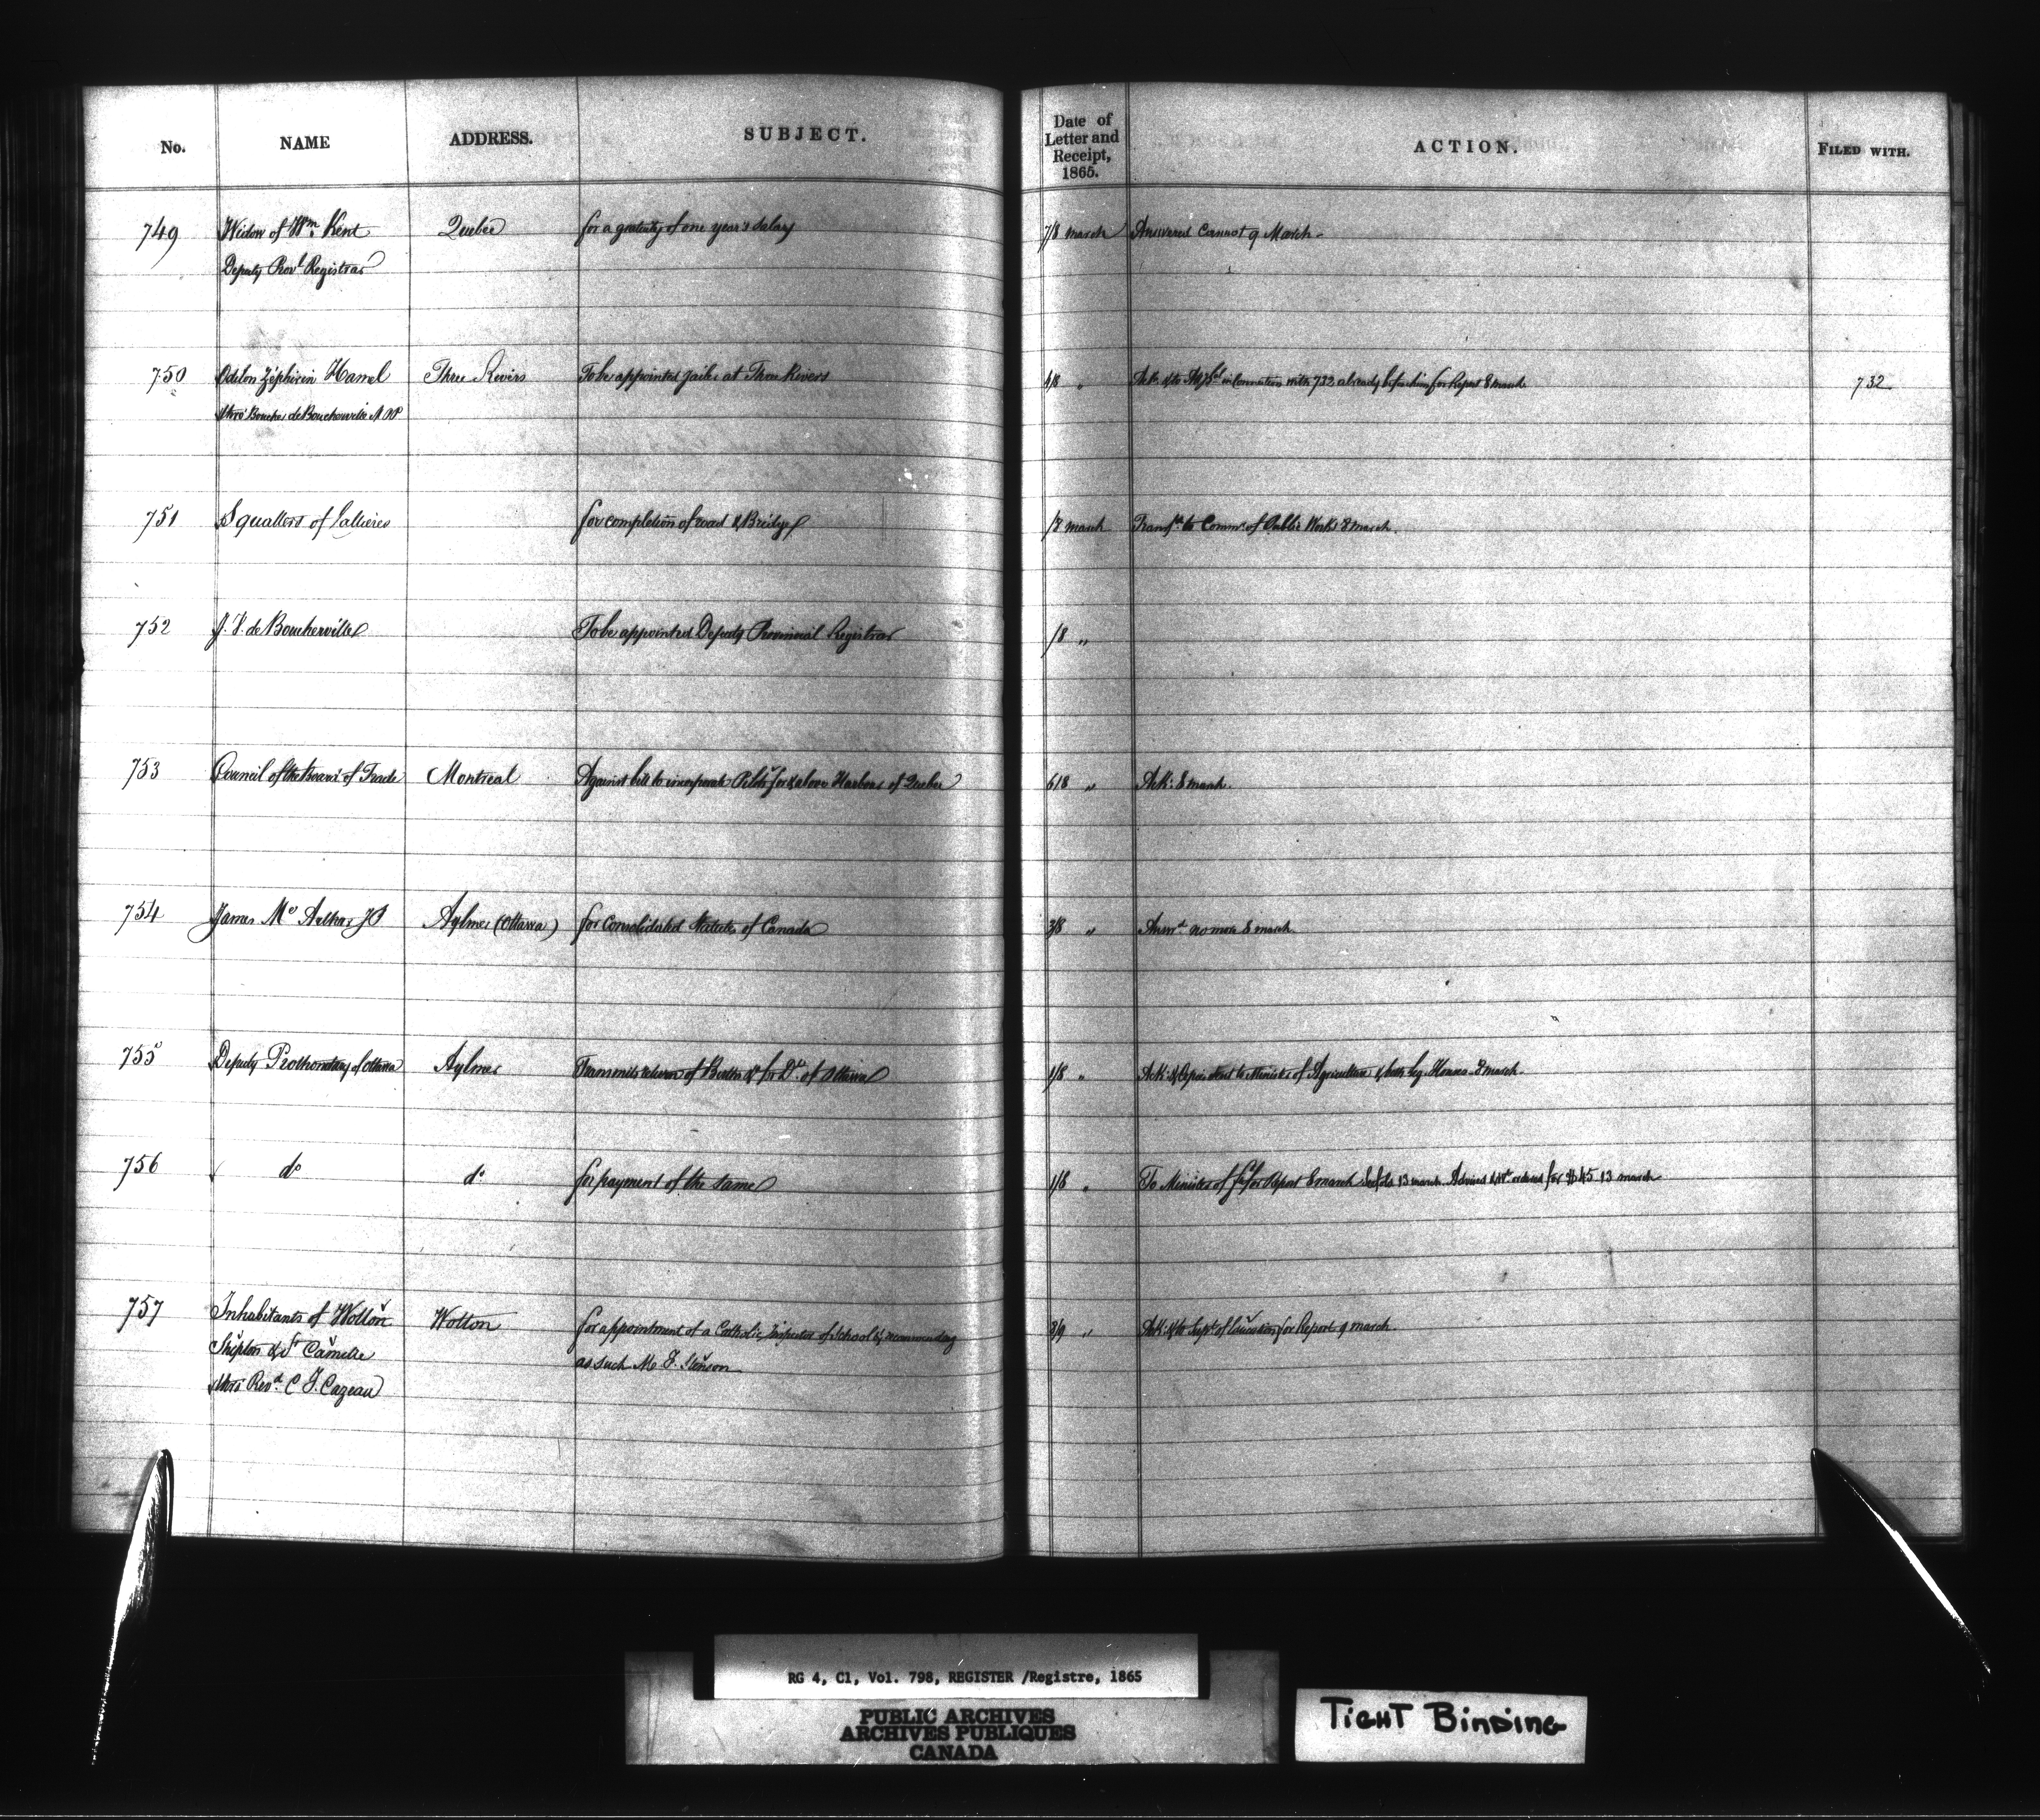 No. NAME ADDRESS. SUBJECT. Date of Letter and Receipt, 1865. ACTION. FILED WITH.
749 Widow of Wm. Kent Quebec for a gratuity of one year's salary 7/8 march Answered Cannot 9 March
Deputy Provl Registrar
750 Odelon Zéphirin Hamel Three Rivers To be appointed jailer at Three Rivers 4/8 " Ack: & to in connection with 732 already before him for Report 8 march 732
thro' Boucher de Boucherville M.P.P.
751 Squatters of for completion of road & Bridge /8 march Transfd. to Commr. of Public Works 8 march.
752 J. V. de Boucherville To be appointed Deputy Provincial Registrar /8 "
753 Council of the Board of Trade Montreal Against bill to incorporate Pilots for & above Harbour of Quebec 6/8 " Ack: 8 march.
754 James Mc Arthur JP Aylmer (Ottawa) for Consolidated Statutes of Canada 3/8 " Answd. no more 8 march.
755 Deputy Prothonotary of Ottawa Aylmer Transmits return of Births &c for Dt. of Ottawa 1/8 " Ack: & to Minister of Agriculture & both leg. Houses 8 march.
756 do do for payment of the same 1/8 " To Minister of for Report 8 march 13 march Advised & Wt. ordered for $45 13 march
757 Inhabitants of Wotton Wotton for appointment of a Catholic Inspector of Schools & recommending 8/9 " Ack: & to Supt. of Education for Report 9 march.
Shipton & St Camille as such Mr J. Stenson
thro' Revd. C F. Cazeau
RG 4, C1, Vol. 798, REGISTER /Registre, 1865
PUBLIC ARCHIVES
ARCHIVES PUBLIQUES
CANADA
TIGHT BINDING